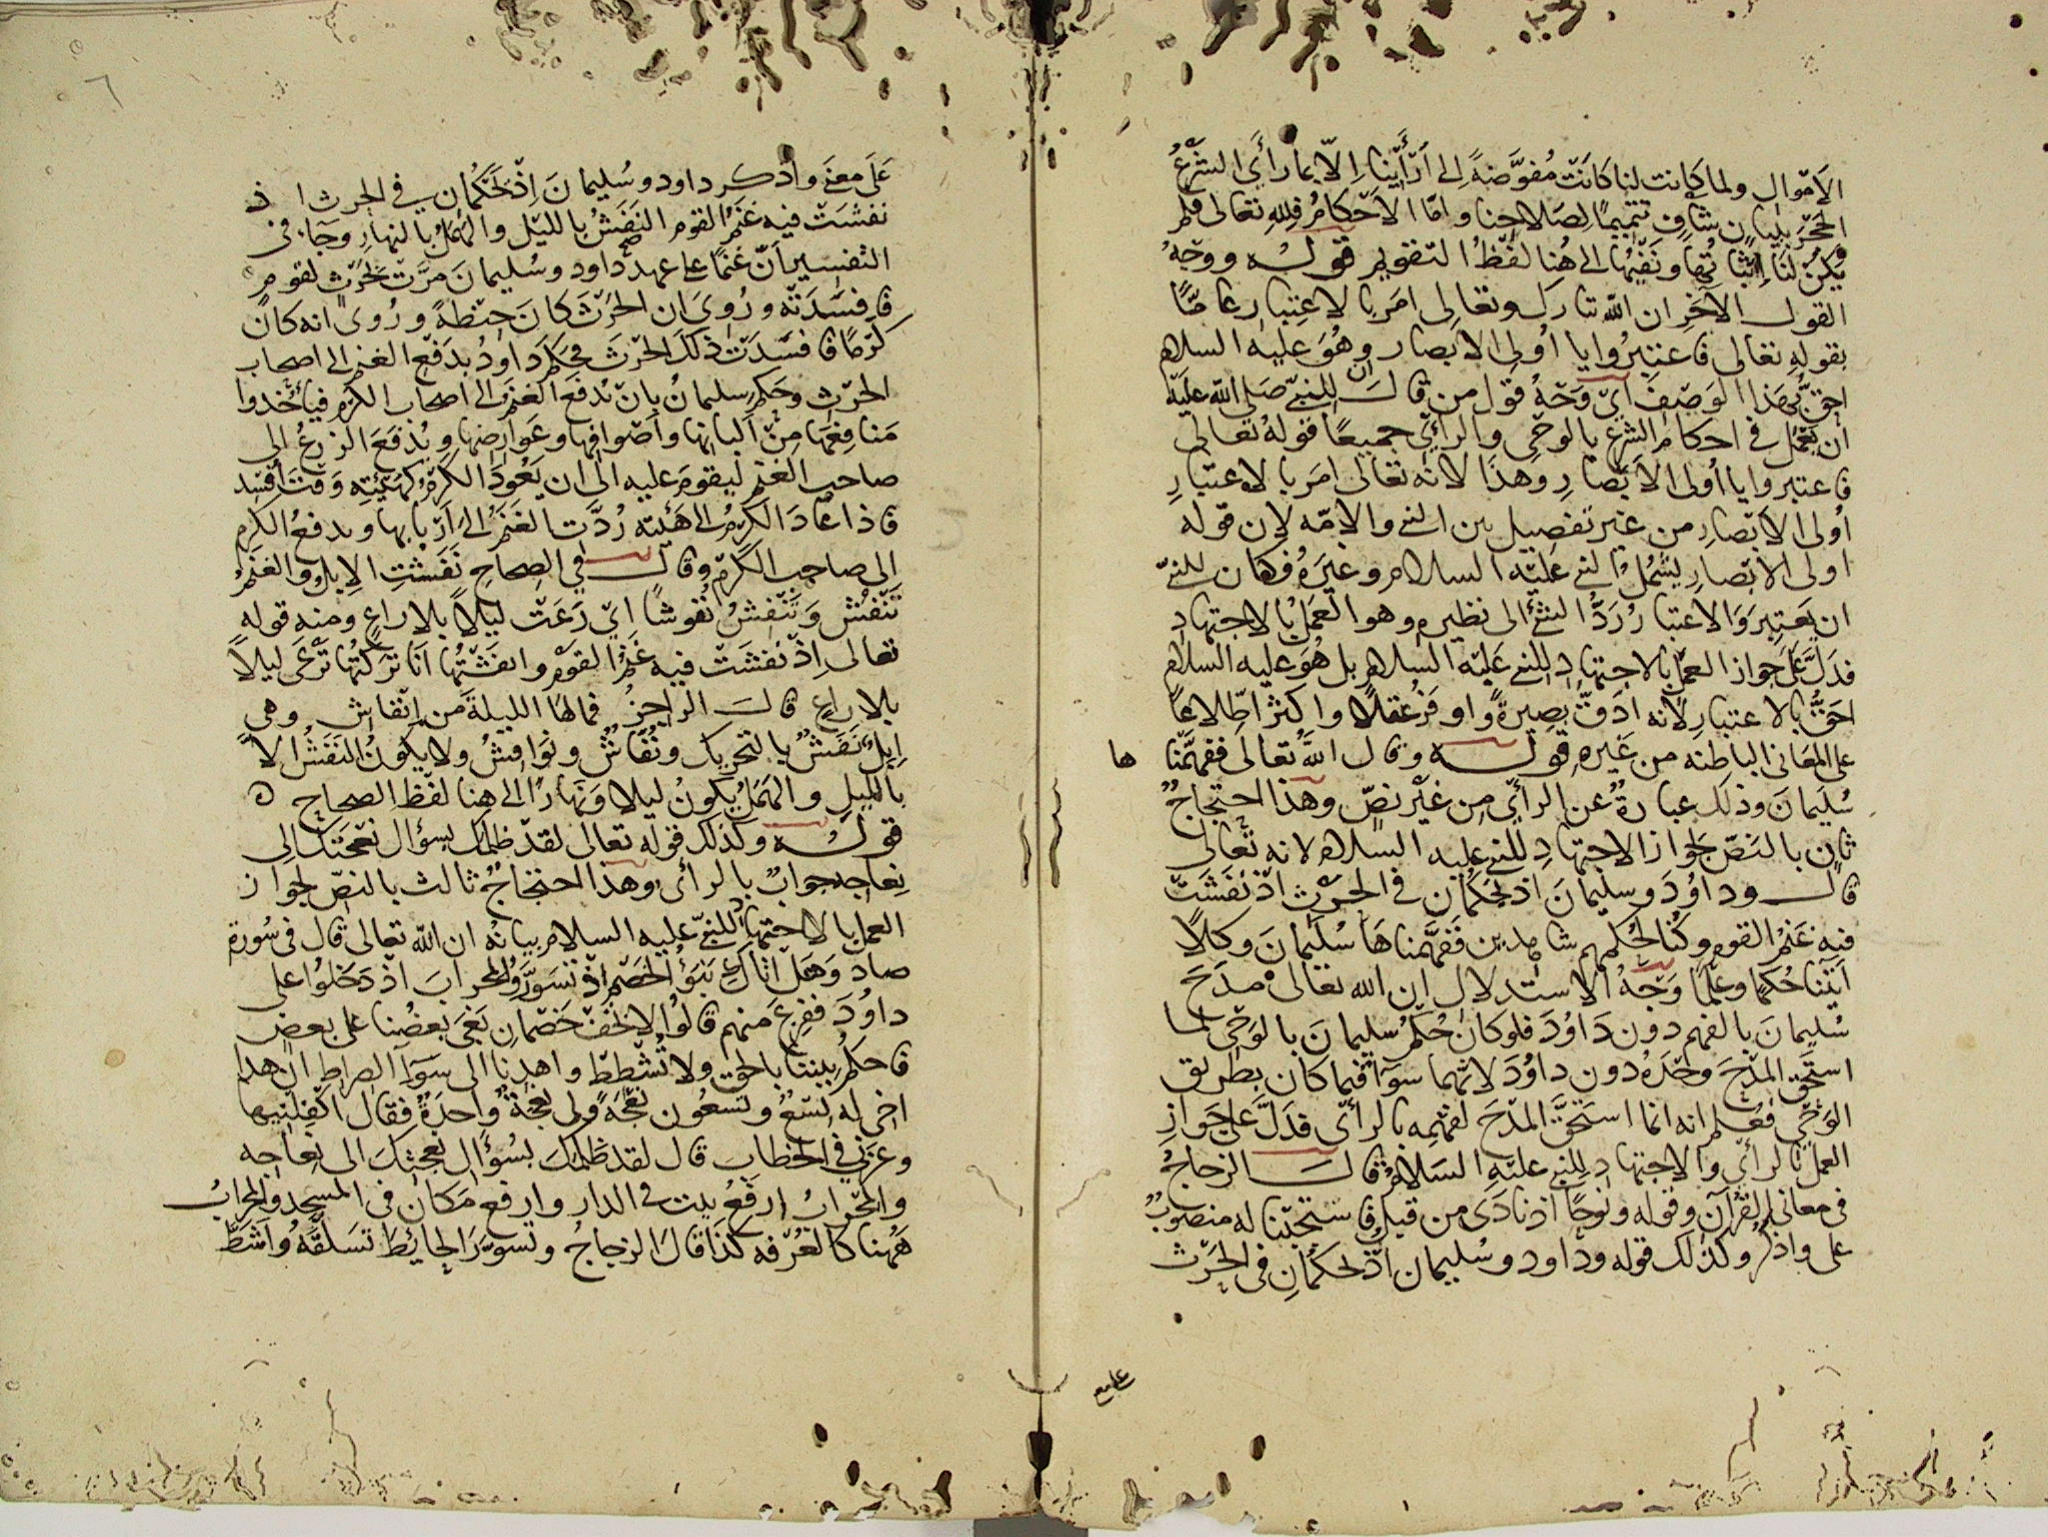 الاموال ولما كانت لنا كانت مفوضة الى ارأينا الا بما رأى الشرع
الحجر ببيان شاف تتميما لصلاحنا واما الاحكام فلله تعالى فلم
يكن لنا اثباتها ونفيها الى هنا لفظ التقويم قوله ووجه
القول الآخر ان الله تبارك وتعالى امر بالاعتبار عاما
بقوله تعالى فاعتبروا يا اولى الابصار وهو عليه السلام
احق بهذا الوصف اي وجه قول من قال ان للنبي صلى الله عليه
ان يعمل في احكام الشرع بالوحي والرأي جميعا قوله تعالى
فاعتبروا يا أولى الابصار وهذا لانه تعالى امر بالاعتبار
أولى الابصار من غير تفصيل بين النبي والامه لان قوله
اولى الابصار يشمل النبي عليه السلام وغيره فكان للنبي
ان يعتبر والاعتبار رد الشئ الى نظيره وهو العمل بالاجتهاد
فدل على جواز العمل بالاجتهاد للنبي عليه السلام بل هو عليه السلام
احق بالاعتبار لانه ادق بصيرة واوفر عقلا واكثر اطلاعا
على المعاني الباطنه من غيره قوله وقال الله تعالى ففهمنا
ها
سليمان وذلك عبارة عن الرأي من غير نص وهذا احتجاج
ثان بالنص لجواز الاجتهاد للنبي عليه السلام لانه تعالى
قال وداوُد وسليمان اذ يحكمان في الحرث اذ نفشت
فيه غنم القوم وكنا لحكمهم شاهدين ففهمناها سليمان وكلا
آتينا حكما وعلما وجه الاستدلال ان الله تعالى مدح
سليمان بالفهم دون داوُد فلو كان حكم سليمان بالوحي لما
استحق المدح وحده دون داوُد لانهما سوآء فيما كان بطريق
الوحي فعلم انه انما استحق المدح لفهمه بالرأي فدل على جواز
العمل بالرأي والاجتهاد للنبي عليه السلام قال الزجاج
في معاني القرآن وقوله ونوحا اذ نادى من قبل فاستجبنا له منصوب
على واذكر وكذلك قوله وداود وسليمان اذ يحكمان في الحرث
على معنى واذكر داود وسليمان اذ يحكمان في الحرث اذ
نفشت فيه غنم القوم النفش بالليل والهمل بالنهار وجا في
التفسير ان غنما على عهد داود وسليمان مرت بحرث لقوم
فافسدته وروي ان الحرث كان حنطة وروي انه كان
كرما فافسدت ذلك الحرث فحكم داود بدفع الغنم الى اصحاب
الحرث وحكم سليمان بان تدفع الغنم الى اصحاب الكرم فيأخذوا
منافعها من ألبانها واصوافها وعوارضها ويدفع الزرع الى
صاحب الغنم ليقوم عليه الى ان يعود الكرم كهيئته وقت أفسد
فاذا عاد الكرم الى هيئته ردت الغنم الى اربابها ويدفع الكرم
الى صاحب الكرم وقال في الصحاح نفشت الابل والغنم
تنفش وتنفش نفوشا اي رعت ليلا بلا راع ومنه قوله
تعالى اذ نفشت فيه غنم القوم وانفشتها انا تركتها ترعى ليلا
بلا راع قال الراجز فما لها الليلة من انفاش وهي
ابل نفش بالتحريك ونفاش ونوافش ولا يكون النفش الا
بالليل والهمل يكون ليلا ونهارا الى هنا لفظ الصحاح ه
قوله وكذلك قوله تعالى لقد ظلمك بسؤال نعجتك الى
نعاجه جواب بالرأي وهذا احتجاج ثالث بالنص لجواز
العمل بالاجتهاد للنبي عليه السلام بيانه ان الله تعالى قال في سورة
صاد وهل اتاك نبؤا الخصم اذ تسوروا المحراب اذ دخلوا على
داوُد ففزع منهم قالوا لا تخف خصمان بغى بعضنا على بعض
فاحكم بيننا بالحق ولا تشطط واهدنا الى سوآ الصراط ان هذا
اخي له تسع وتسعون نعجة ولي نعجة واحدة فقال اكفلنيها
وعزني في الخطاب قال لقد ظلمك بسؤال نعجتك الى نعاجه
والمحراب ارفع بيت في الدار وارفع مكان في المسجد والمحراب
ههنا كالغرفه كذا قال الزجاج وتسور الحائط تسلقه واشط